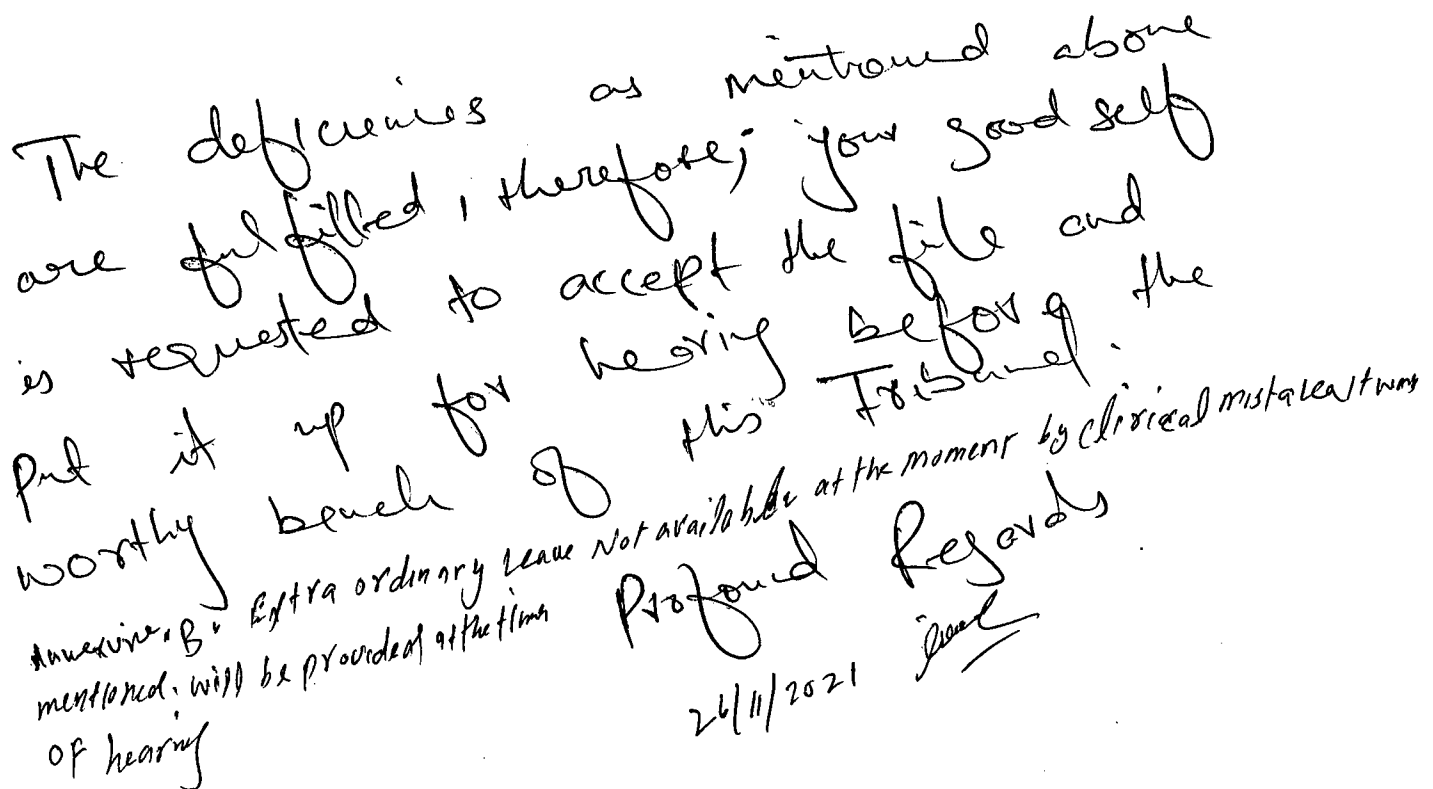 The deficiencies as mentioned above
are fulfilled, therefore; your good self
is requested to accept the file and
put it up for hearing before the
worthy bench of this Tribunal.
Annexure "B" Extra ordinary Leave Not available at the moment by clirical mistake it was
mentioned. will be provided at the time
of hearing
Profound Regards
26/11/2021